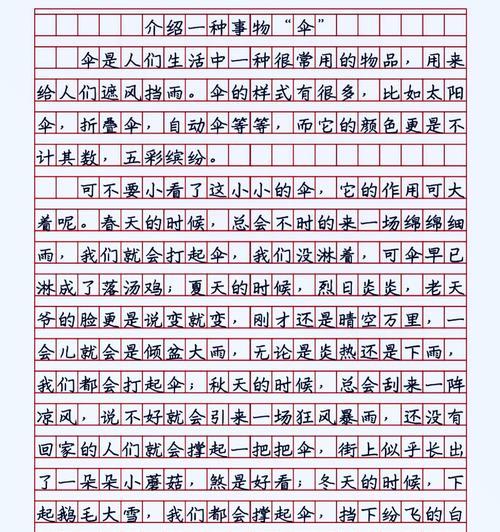 介绍一种事物“伞”
伞是人们生活中一种很常用的物品，用来
给人们遮风挡雨。伞的样式有很多，比如太阳
伞，折叠伞，自动伞等等，而它的颜色更是不
计其数，五彩缤纷。
可不要小看了这小小的伞，它的作用可大
着呢。春天的时候，总会不时的来一场绵绵细
雨，我们就会打起伞，我们没淋着，可伞早已
淋成了落汤鸡；夏天的时候，烈日炎炎，老天
爷的脸更是说变就变，刚才还是晴空万里，一
会儿就会是倾盆大雨，无论是炎热还是下雨，
我们都会打起伞；秋天的时候，总会刮来一阵
凉风，说不好就会引来一场狂风暴雨，还没有
回家的人们就会撑起一把把伞，街上似乎长出
了一朵朵小蘑菇，煞是好看；冬天的时候，下
起鹅毛大雪，我们都会撑起伞，挡下纷飞的白